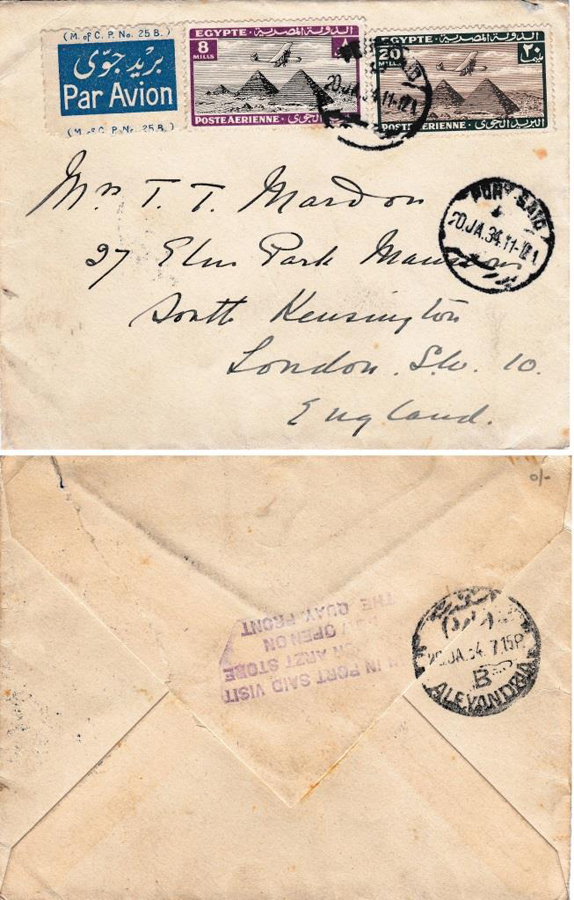 (M. of C. P. No. 25 B.)
بريد جوى
Par Avion
(M. of C. P. No. 25 B.)
EGYPTE الدولة المصرية
8
MILLS
POSTE AERIENNE البريد الجوى
EGYPTE الدولة المصرية
20
MILLS
٢٠
POSTE AERIENNE البريد الجوى
SAID
20.JA.34.11-12
T. T. Mardon
PORT SAID
20.JA.34.11-12
27 Elm Park Mansions
South Kensington
London. S.W. 10.
England.
o/-
IN PORT SAID VISIT
ARZT STORE
OPEN ON
THE QUAY FRONT
20.JA.34.7.15P
B
ALEXANDRIA